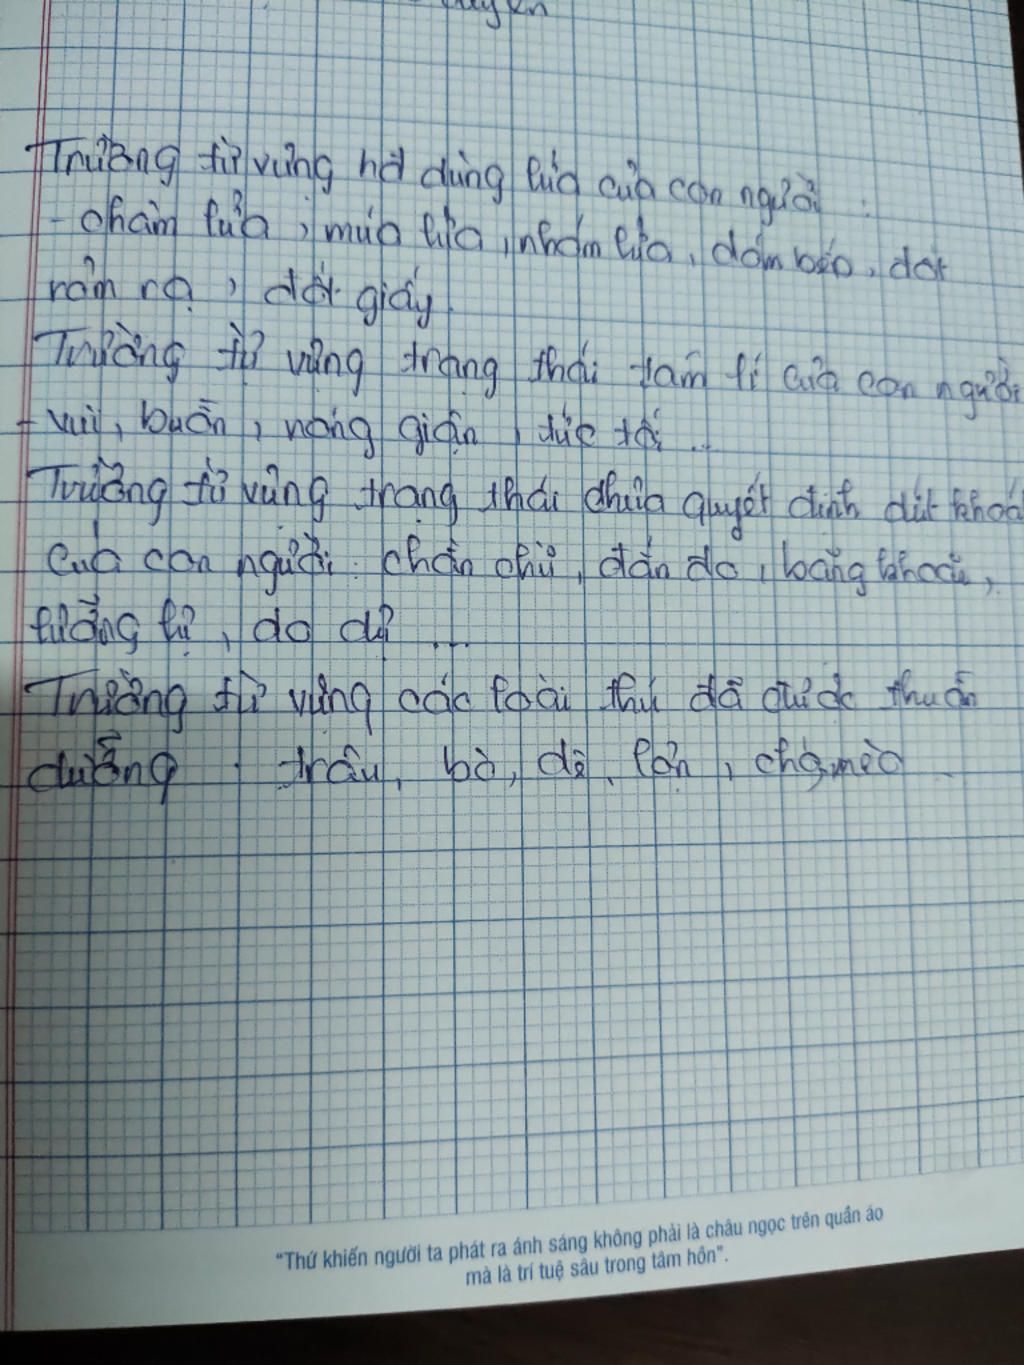 Trường từ vựng hđ dùng lửa của con người :
- châm lửa, múa lửa, nhóm lửa, đốm bếp, đốt
rơm rạ, đốt giấy.
Trường từ vựng trạng thái tâm lí của con người
- vui, buồn, nóng giận, tức tối ...
Trường từ vựng trạng thái chưa quyết định dứt khoá
của con người: chần chừ, đắn đo, băng khoă,
lưỡng lự, do dự ...
Trường từ vựng các loài thú đã được thuần
dưỡng : trâu, bò, dê, lợn, chó, mèo
"Thứ khiến người ta phát ra ánh sáng không phải là châu ngọc trên quần áo
mà là trí tuệ sâu trong tâm hồn".